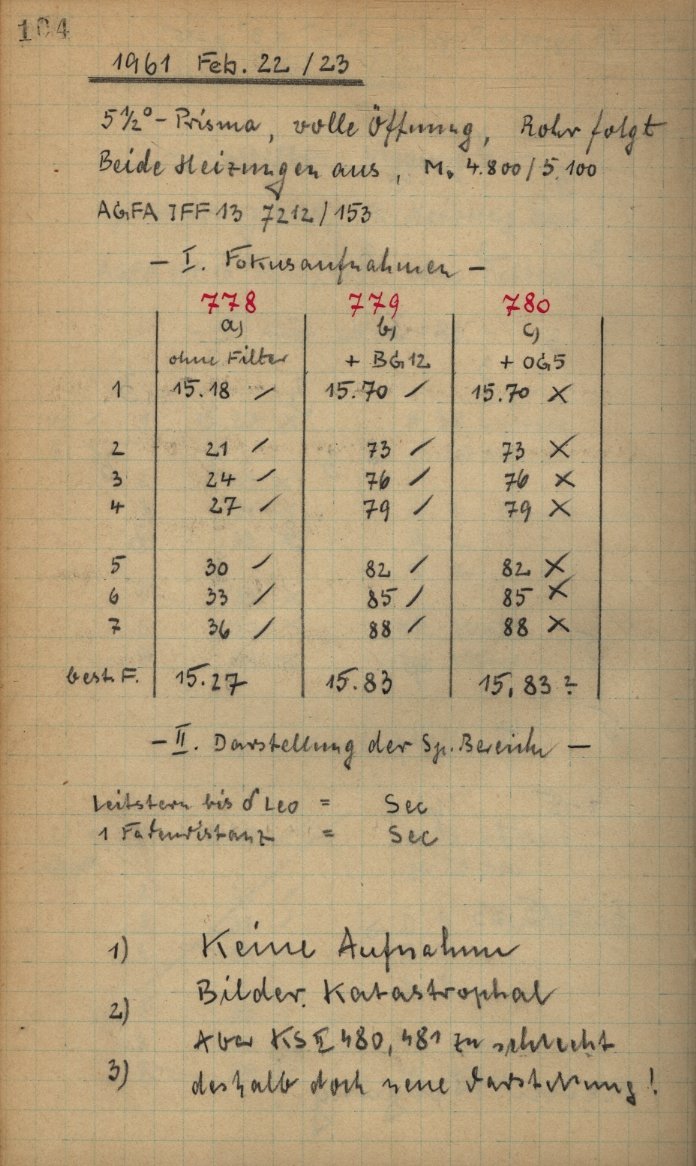 104
1961 Feb. 22/23
5½°-Prisma, volle Öffnung, Rohr folgt
Beide Heizungen aus, M. 4.800/5.100
AGFA IFF 13 7212/153
- I. Fokusaufnahmen -
778 779 780
a) b) c)
ohne Filter + BG12 + OG5
1 15.18 / 15.70 / 15.70 X
2 21 / 73 / 73 X
3 24 / 76 / 76 X
4 27 / 79 / 79 X
5 30 / 82 / 82 X
6 33 / 85 / 85 X
7 36 / 88 / 88 X
best. F. 15.27 15.83 15.83?
- II. Darstellung der Sp. Bereiche -
Leitstern bis δ Leo = Sec
1 Fadendistanz = Sec
1) Keine Aufnahme
Bilder Katastrophal
2)
Aber KS II 480, 481 zu schlecht
3) deshalb doch neue Darstellung!